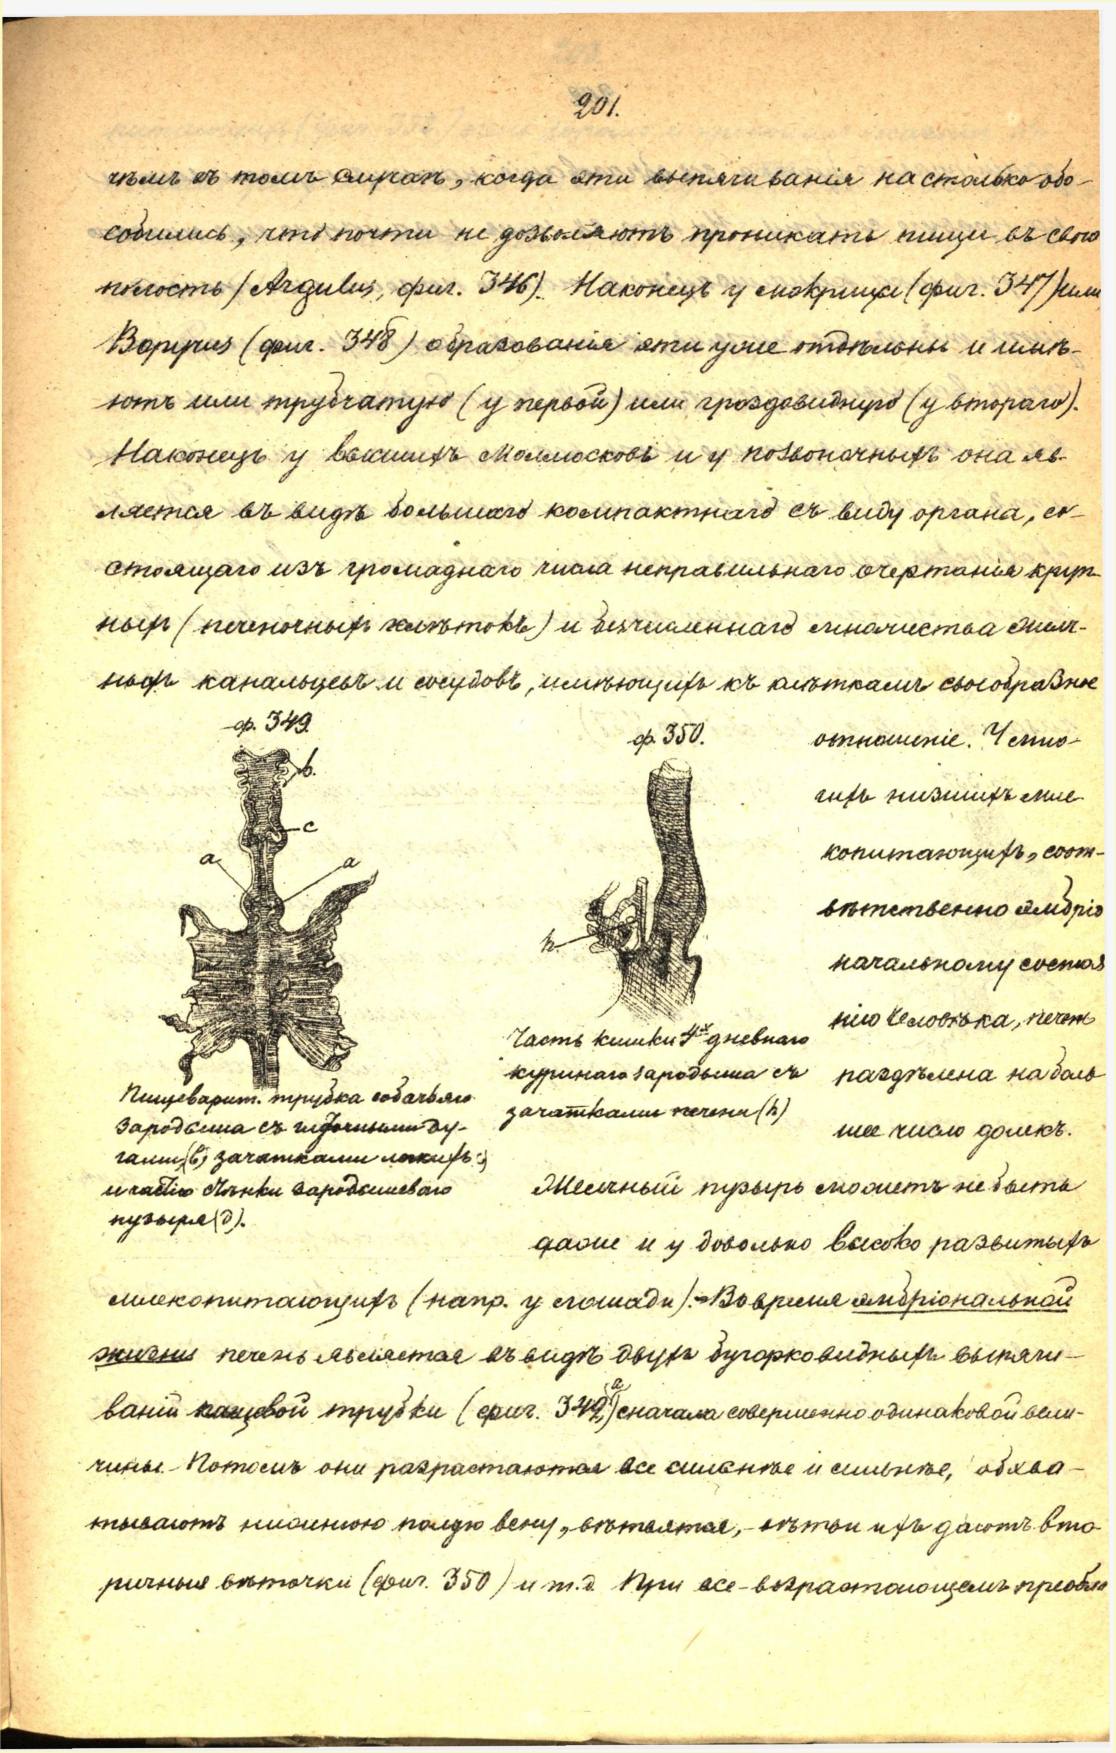 201.
чѣмъ въ томъ случаѣ, когда эти выпячиванія настолько обо-
собились, что почти не дозволяютъ проникать пищи въ свою
полость (Argulus, фиг. 346). Наконецъ у мокрицы (фиг. 347) или
Bopyrus (фиг. 348) образованія эти уже отдѣльны и имѣ-
ютъ или трубчатую (у первой) или гроздовидную (у втораго).
Наконецъ у высшихъ моллюсковъ и у позвоночныхъ она яв-
ляется въ видѣ большаго компактнаго съ виду органа, со-
стоящаго изъ громаднаго числа неправильнаго очертанія круп-
ныхъ (печеночныхъ клѣтокъ) и безчисленнаго множества желч-
ныхъ канальцевъ и сосудовъ, имѣющихъ къ клѣткамъ своеобразное
отношеніе. У мно-
гихъ низшихъ мле-
копитающихъ, соот-
вѣтственно эмбріо
нальному состоя
нію человѣка, печень
раздѣлена на боль
шее число долекъ.
ф. 349.
b.
c
a
a
Пищеварит. трубка собачьяго
зародыша съ глоточными ду-
гами (b) зачатками легкихъ c)
и частію стѣнки зародышеваго
пузыря (d).
ф. 350.
h
Часть кишки 4х дневнаго
куринаго зародыша съ
зачатками печени (h)
Желчный пузырь можетъ не быть
даже и у довольно высоко развитыхъ
млекопитающихъ (напр. у лошади). – Во время эмбріональной
жизни печень является въ видѣ двухъ бугорковидныхъ выпячи-
ваній кишевой трубки (фиг. 349 a) сначала совершенно одинаковой вели-
чины. Потомъ они разрастаются все сильнѣе и сильнѣе, обхва-
тываютъ нижнюю полую вену, вѣтвятся, – вѣтви ихъ даютъ вто
ричныя вѣточки (фиг. 350) и т.д. При все-возрастающемъ преобла